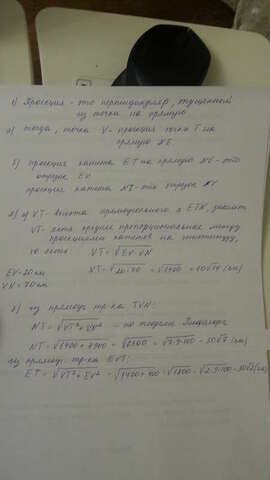 1) Проекция - это перпендикуляр, опущенный
из точки на прямую
а) тогда, точка V - проекция точки T на
прямую NE
б) проекция катета ET на прямую NE - это
отрезок EV
проекция катета NT - это отрезок NV
VT - высота прямоугольного △ ETN, значит
VT - есть среднее пропорциональное между
проекциями катетов на гипотенузу,
то есть VT = √EV·VN
EV = 20 см
VN = 70 см
VT = √20·70 = √1400 = 10√14 (см)
из прямоуг. тр-ка TVN:
NT = √VT²+VN² - по теореме Пифагора
NT = √1400 + 4900 = √6300 = √7·9·100 = 30√7 (см)
из прямоуг. тр-ка EVT:
ET = √VT² + EV² = √1400+400 = √1800 = √2·9·100 = 30√2 (см)